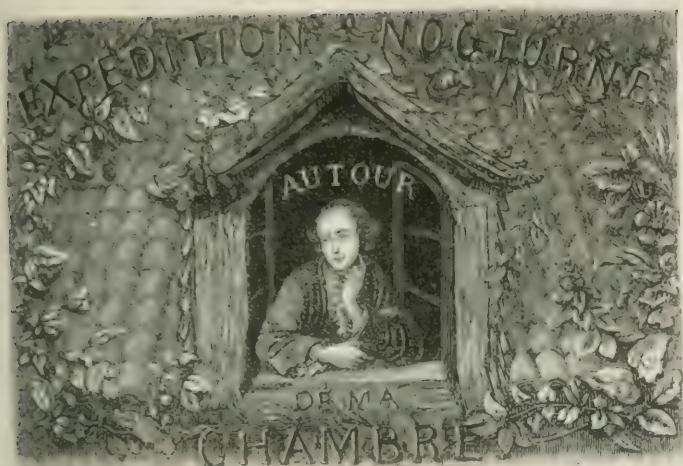 EXPÉDITION NOCTURNE
AUTOUR
DE MA
CHAMBRE